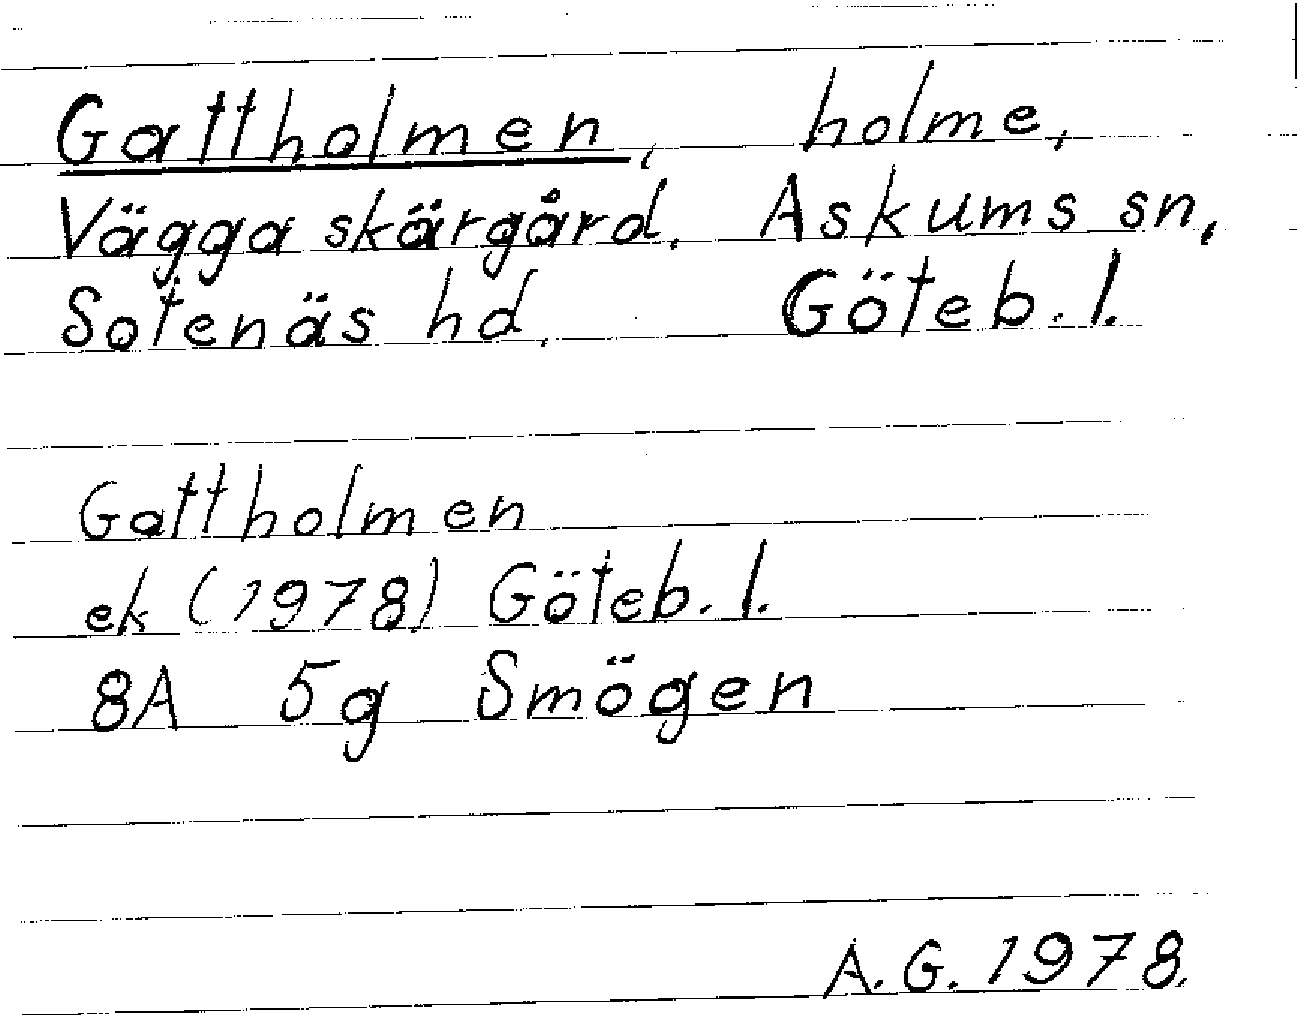 Gattholmen, holme,
Vägga skärgård. Askums sn,
Sotenäs hd. Göteb. l.
Gattholmen
ek (1978) Göteb. l.
8A 5g Smögen
A. G. 1978.